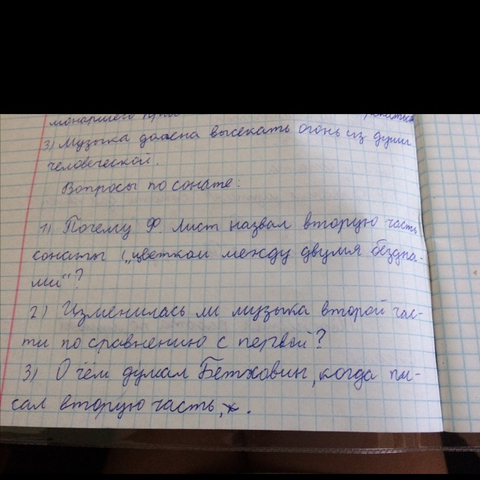 3) Музыка должна высекать огонь из души
человеческой.
Вопросы по сонате:
1) Почему Ф. Лист назвал вторую часть
сонаты („цветком между двумя бездна-
ми“?
2) Изменилась ли музыка второй час-
ти по сравнению с первой?
3) О чём думал Бетховин, когда пи-
сал вторую часть,.